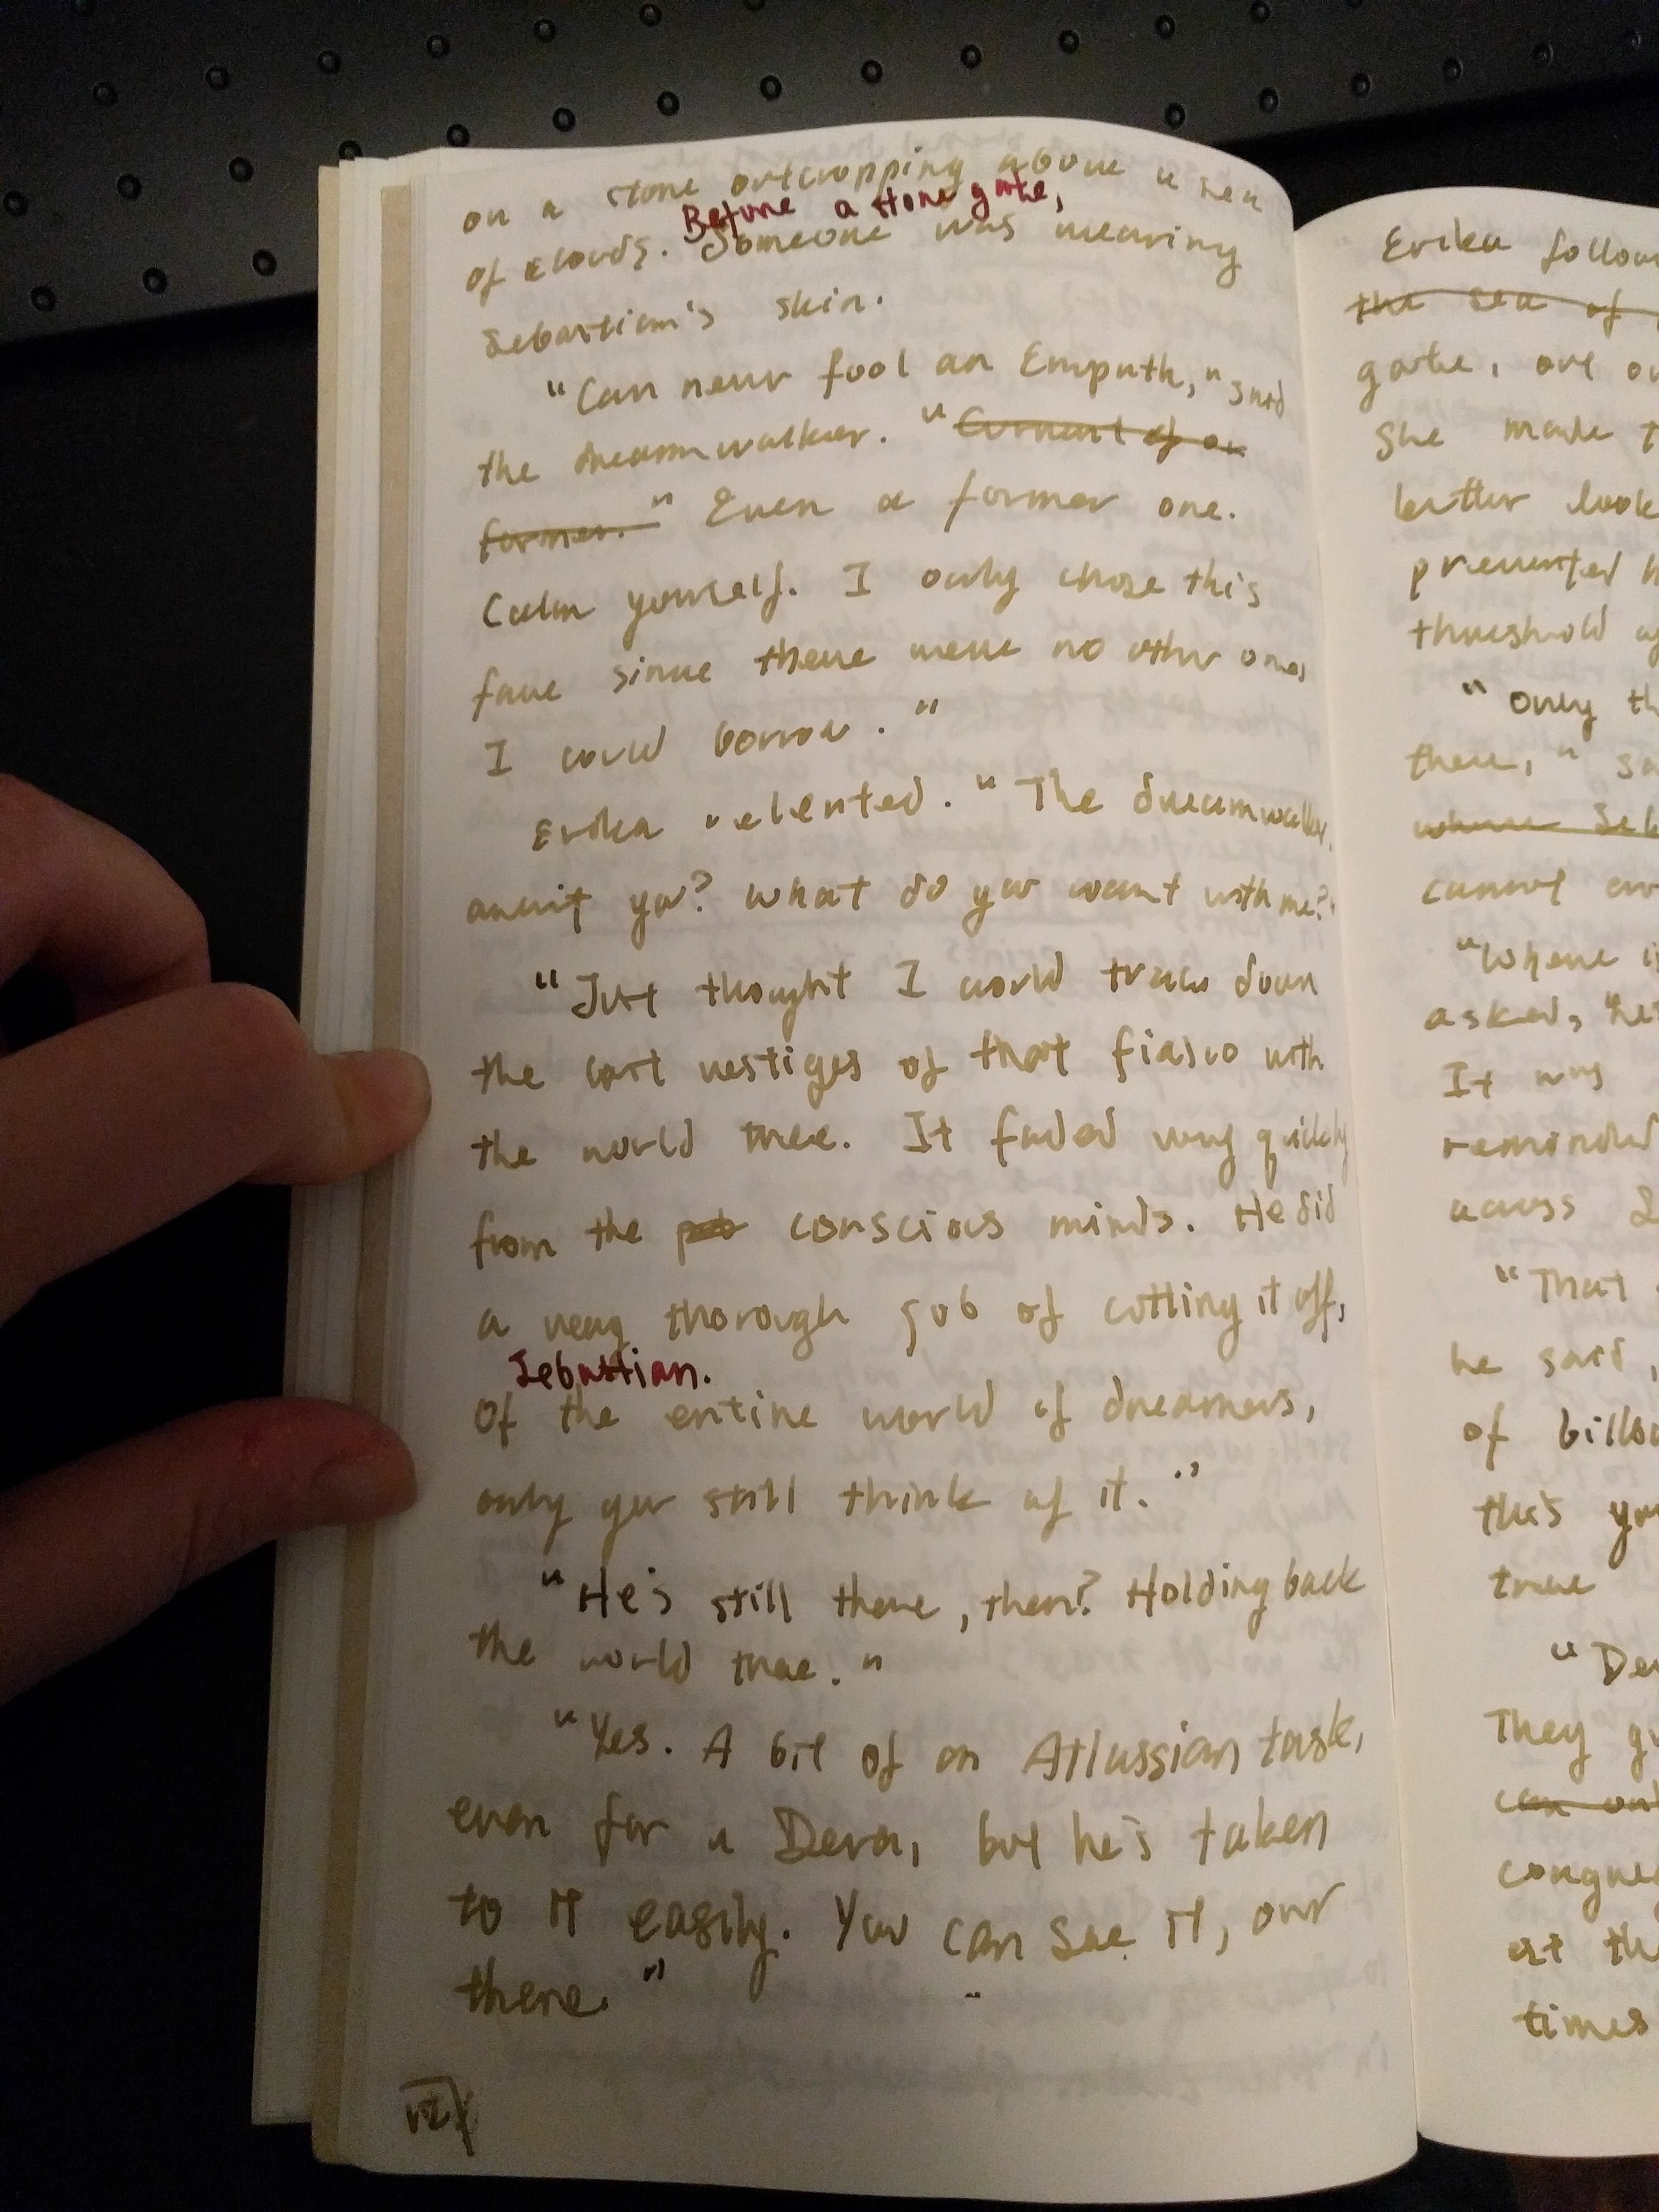 on a stone outcropping above a sea
Before a stone gate,
of clouds. Someone was wearing
Sebastian's skin.
"Can never fool an Empath," said
the dreamwalker. "Current of an
former." Even a former one.
Calm yourself. I only chose this
face since there were no other ones
I could borrow."
Erika relented. "The dreamwalker,
aren't you? What do you want with me?"
"Just thought I would track down
the last vestiges of that fiasco with
the world tree. It faded very quickly
from the conscious minds. He did
a very thorough job of cutting it off,
Sebastian.
Of the entire world of dreamers,
only you still think of it."
"He's still there, then? Holding back
the world tree."
"Yes. A bit of an Atlassian task,
even for a Deva, but he's taken
to it easily. You can see it, out
there."
Erika follow
the sea of
gate, out ov
She made t
better look
prevented h
threshold
"Only th
there," sa
where Seb
cannot
"Where i
asked,
It was
reminded
across S
"That
he said,
of billo
this you
tree
"De
They g
can
conque
at th
times